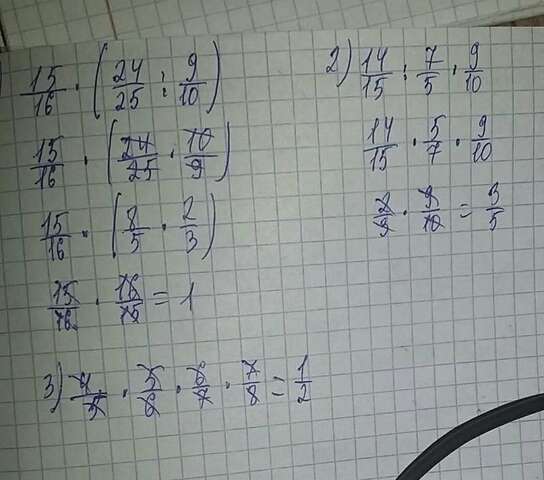 15/16 · (24/25 : 9/10)
15/16 · (24/25 · 10/9)
15/16 · (8/5 · 2/3)
15/16 · 16/15 = 1
2) 14/15 : 7/5 · 9/10
14/15 · 5/7 · 9/10
· 9/10 = 3/5
3) 4/5 · 5/6 · 6/7 · 7/8 = 1/2